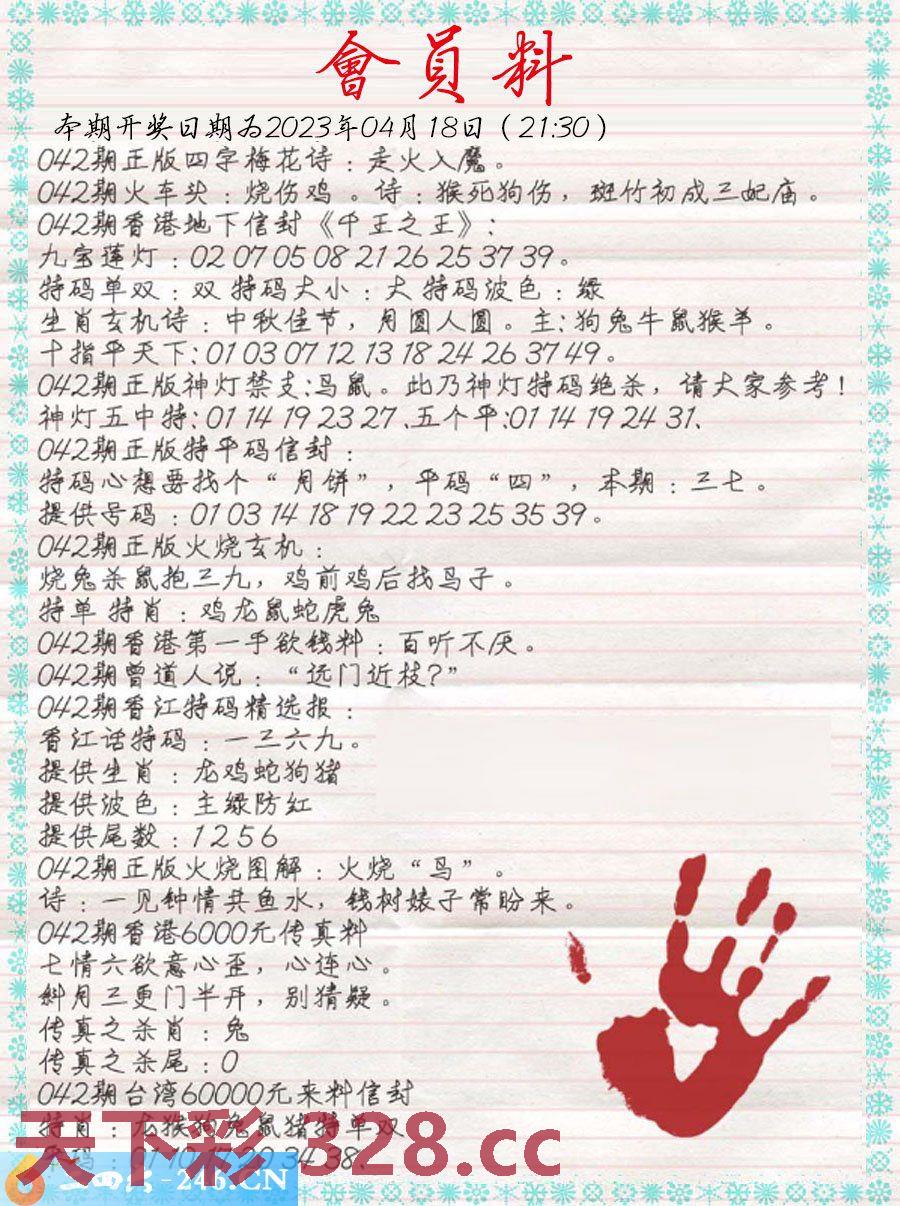 會員料
本期开奖日期为2023年04月18日（21:30）
042期正版四字梅花诗：走火入魔。
042期火车头：烧伤鸡 。诗：猴死狗伤，斑竹初成三妃庙。
042期香港地下信封《千王之王》:
九宝莲灯：02 07 05 08 21 26 25 37 39。
特码单双：双 特码大小：大 特码波色：绿
生肖玄机诗：中秋佳节，月圆人圆。主: 狗兔牛鼠猴羊。
十指平天下: 01 03 07 12 13 18 24 26 37 49。
042期正版神灯禁支:鸟鼠。此乃神灯特码绝杀，请大家参考！
神灯五中特: 01 14 19 23 27 .五个平:01 14 19 24 31.
042期正版特平码信封：
特码心想要找个“月饼”，平码“四”，本期：三七。
提供号码：01 03 14 18 19 22 23 25 35 39。
042期正版火烧玄机：
烧兔杀鼠抱三九，鸡前鸡后找鸟子。
特单 特肖：鸡龙鼠蛇虎兔
042期香港第一手欲钱料：百听不厌。
042期曾道人说：“远门近枝?”
042期香江特码精选报：
香江话特码：一三六九。
提供生肖：龙鸡蛇狗猪
提供波色：主绿防红
提供尾数：1 2 5 6
042期正版火烧图解：火烧“鸟”。
诗：一见钟情共鱼水，钱树婊子常盼来。
042期香港6000元传真料
七情六欲意心歪，心连心。
斜月三更门半开，别猜疑。
传真之杀肖：兔
传真之杀尾：0
042期台湾60000元来料信封
特肖：龙猴狗兔鼠猪特单双
34 38.
天下彩 328.cc
246.CN